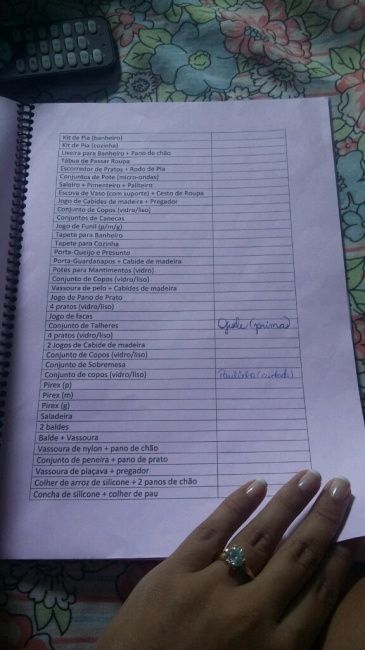 Kit de Pia (banheiro)
Kit de Pia (cozinha)
Lixeira para Banheiro + Pano de chão
Tábua de Passar Roupa
Escorredor de Pratos + Rodo de Pia
Conjuntos de Pote (micro-ondas)
Saleiro + Pimenteiro + Paliteiro
Escova de Vaso (com suporte) + Cesto de Roupa
Jogo de Cabides de madeira + Pregador
Conjunto de Copos (vidro/liso)
Conjuntos de Canecas
Jogo de Funil (p/m/g)
Tapete para Banheiro
Tapete para Cozinha
Porta-Queijo e Presunto
Porta-Guardanapos + Cabide de madeira
Potes para Mantimentos (vidro)
Conjunto de Copos (vidro/liso)
Vassoura de pelo + Cabides de madeira
Jogo de Pano de Prato
4 pratos (vidro/liso)
Jogo de facas
Conjunto de Talheres (prima)
4 pratos (vidro/liso)
2 Jogos de Cabide de madeira
Conjunto de Copos (vidro/liso)
Conjunto de Sobremesa
Conjunto de copos (vidro/liso)
Pirex (p)
Pirex (m)
Pirex (g)
Saladeira
2 baldes
Balde + Vassoura
Vassoura de nylon + pano de chão
Conjunto de peneira + pano de prato
Vassoura de piaçava + pregador
Colher de arroz de silicone + 2 panos de chão
Concha de silicone + colher de pau